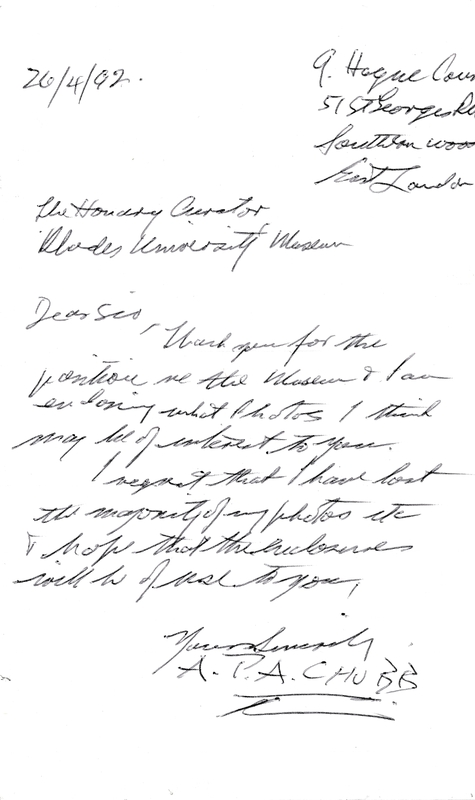 26/4/92.
9. Hogue Cour
51 St Georges Rd
Southern wood
East London
The Honary Curator
Rhodes University Museum
Dear Sir,
Thank you for the
position re the Museum & I am
enclosing what Photos I think
may be of interest to you.
I regret that I have lost
the majority of my photos etc
& hope that the enclosures
will be of use to you,
Yours Sincerely
A. P. A. CHUBB